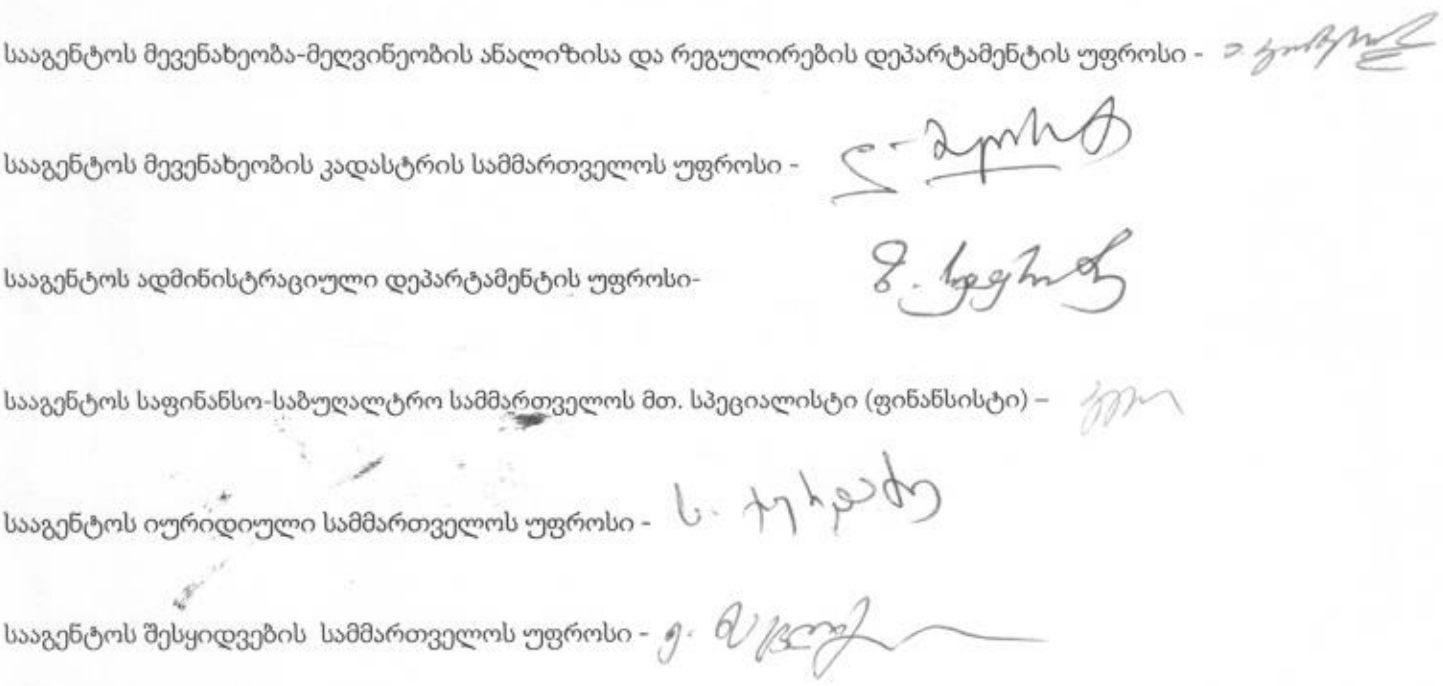 სააგენტოს მევენახეობა-მეღვინეობის ანალიზისა და რეგულირების დეპარტამენტის უფროსი -
სააგენტოს მევენახეობის კადასტრის სამმართველოს უფროსი -
სააგენტოს ადმინისტრაციული დეპარტამენტის უფროსი-
სააგენტოს საფინანსო-საბუღალტრო სამმართველოს მთ. სპეციალისტი (ფინანსისტი) –
სააგენტოს იურიდიული სამმართველოს უფროსი -
სააგენტოს შესყიდვების სამმართველოს უფროსი -